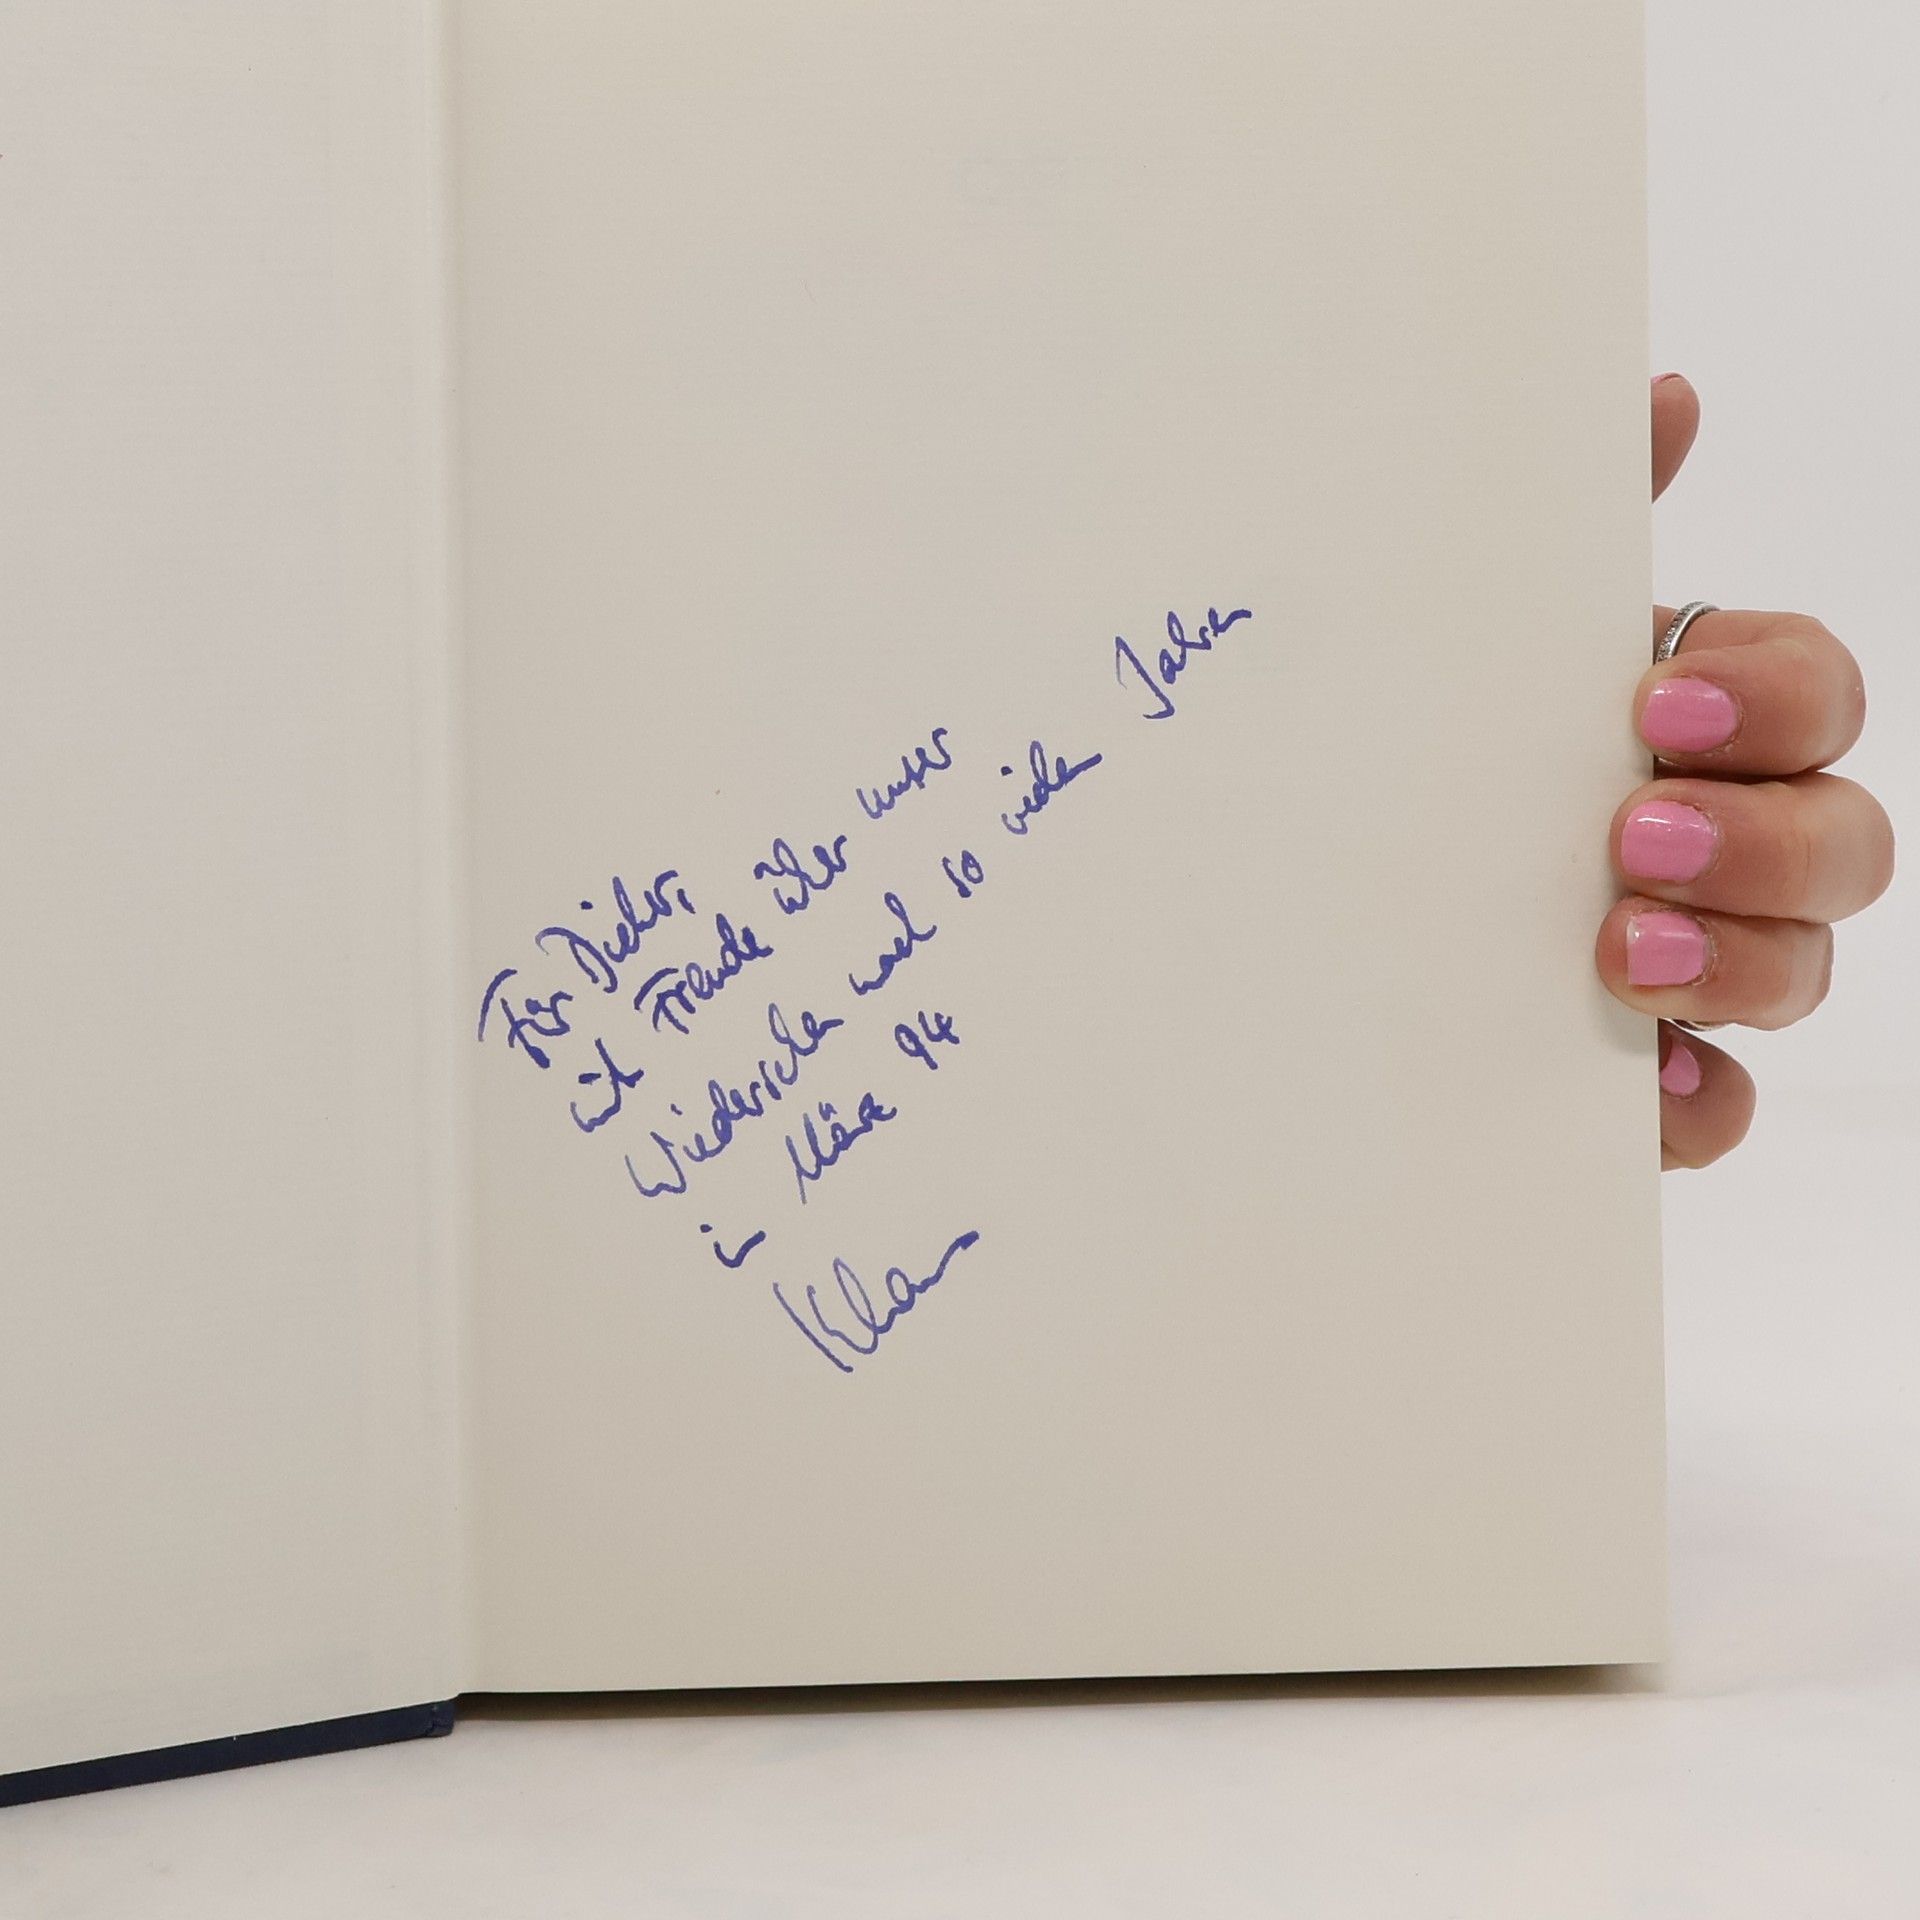 Für Dieter,
mit Freude über unser
Wiedersehen nach so vielen Jahren
im März 94
Klaus